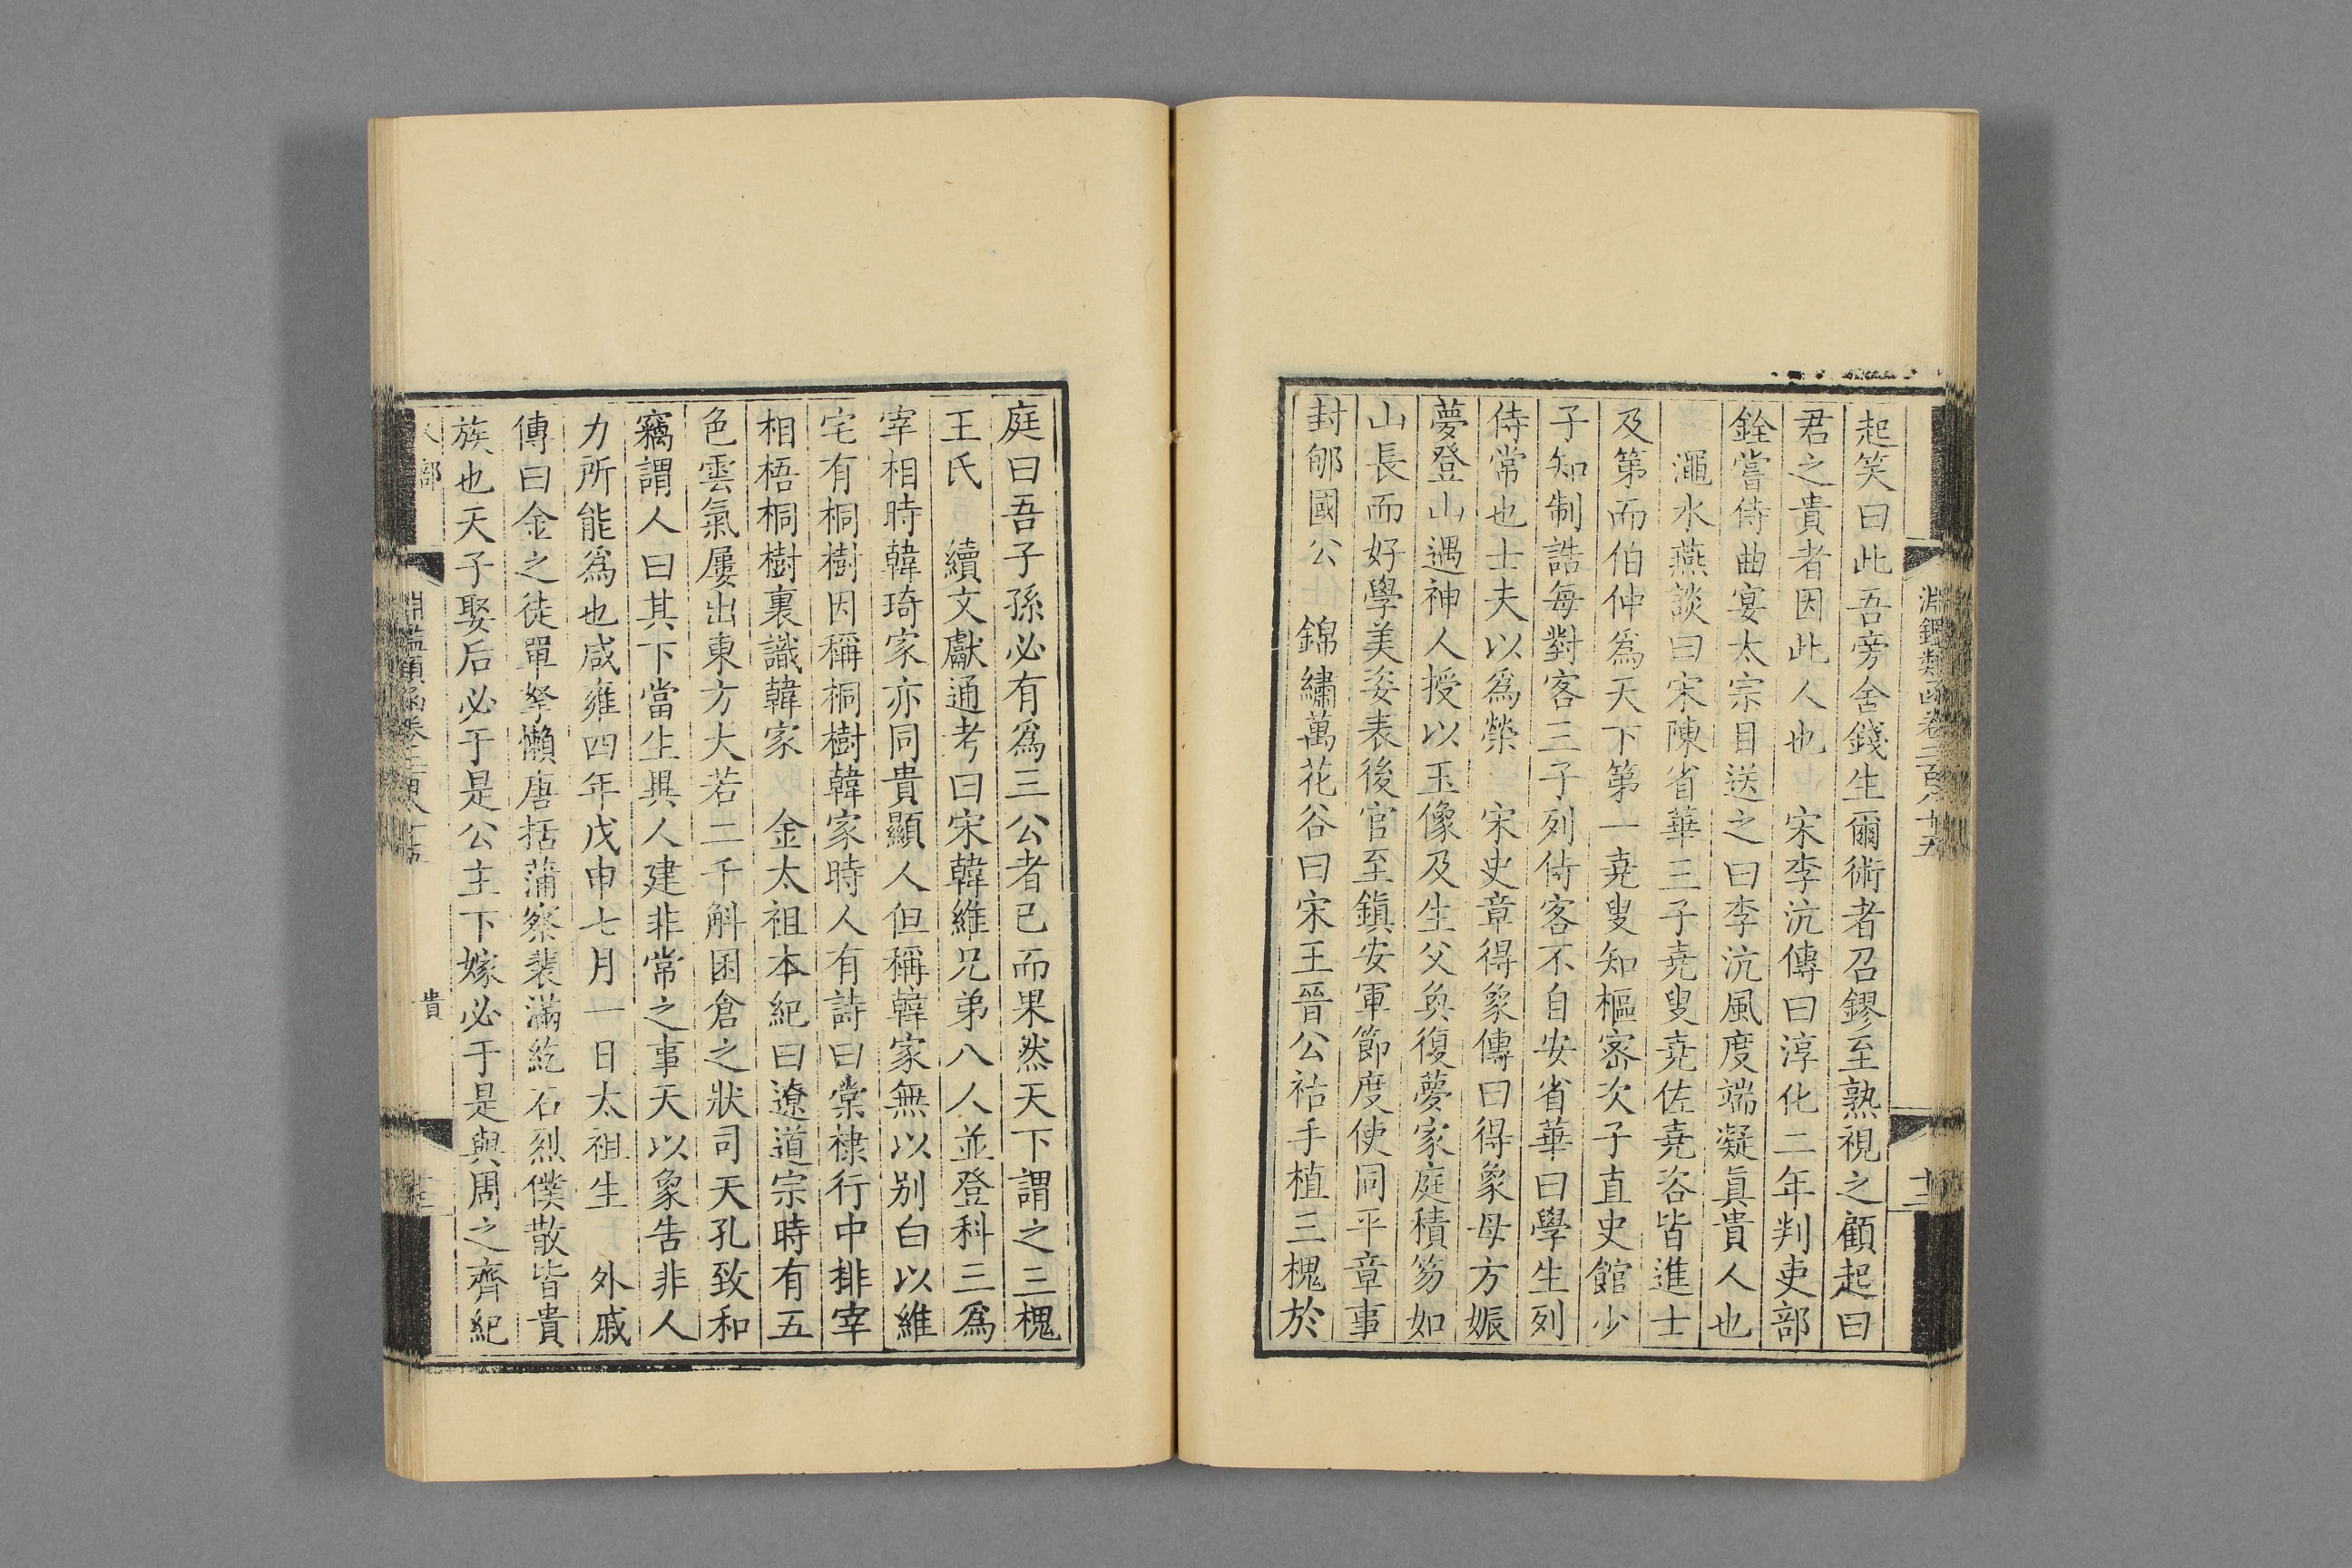 淵鑑類函卷二百八十五
十三
起笑曰此吾旁舍錢生爾術者召鏐至熟視之顧起曰
君之貴者因此人也　宋李沆傳曰淳化二年判吏部
銓嘗侍曲宴太宗目送之曰李沆風度端凝眞貴人也
澠水燕談曰宋陳省華三子堯叟堯佐堯咨皆進士
及第而伯仲爲天下第一堯叟知樞密次子直史館少
子知制誥每對客三子列侍客不自安省華曰學生列
侍常也士夫以爲榮　宋史章得象傳曰得象母方娠
夢登山遇神人授以玉像及生父奐復夢家庭積笏如
山長而好學美姿表後官至鎭安軍節度使同平章事
封郇國公　錦繡萬花谷曰宋王晉公祜手植三槐於
庭曰吾子孫必有爲三公者已而果然天下謂之三槐
王氏　續文獻通考曰宋韓維兄弟八人並登科三爲
宰相時韓琦家亦同貴顯人但稱韓家無以别白以維
宅有桐樹因稱桐樹韓家時人有詩曰棠棣行中排宰
相梧桐樹裏識韓家　金太祖本紀曰遼道宗時有五
色雲氣屢出東方大若二千斛囷倉之狀司天孔致和
竊謂人曰其下當生異人建非常之事天以象告非人
力所能爲也咸雍四年戊申七月一日太祖生　外戚
傳曰金之徒單拏懶唐括蒲察裴滿紇石烈僕散皆貴
族也天子娶后必于是公主下嫁必于是與周之齊紀
部
貴